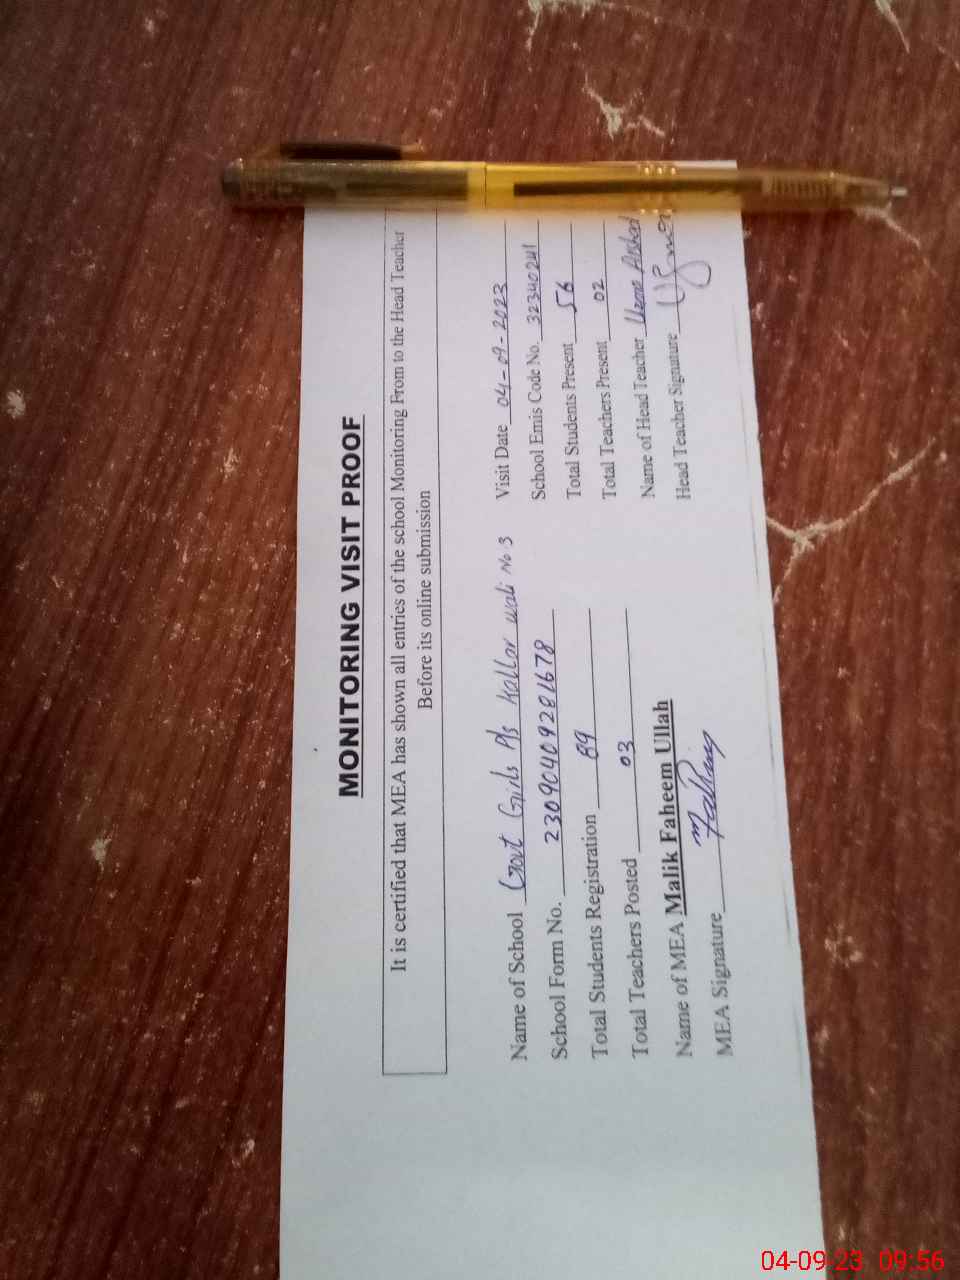 MONITORING VISIT PROOF
It is certified that MEA has shown all entries of the school Monitoring From to the Head Teacher
Before its online submission
Name of School Govt Girls P/s Kallar wali No 3
Visit Date 04-09-2023
School Form No. 2309040928 1678
School Emis Code No. 32340241
Total Students Registration 89
Total Students Present 56
Total Teachers Posted 03
Total Teachers Present 02
Name of MEA Malik Faheem Ullah
Name of Head Teacher Uzma Arshad
MEA Signature
Head Teacher Signature
04-09-23 09:56